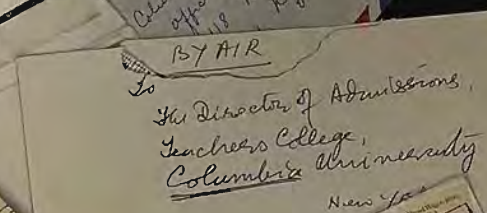 BY AIR
To
The Director of Admissions,
Teachers College,
Columbia University
New Yo